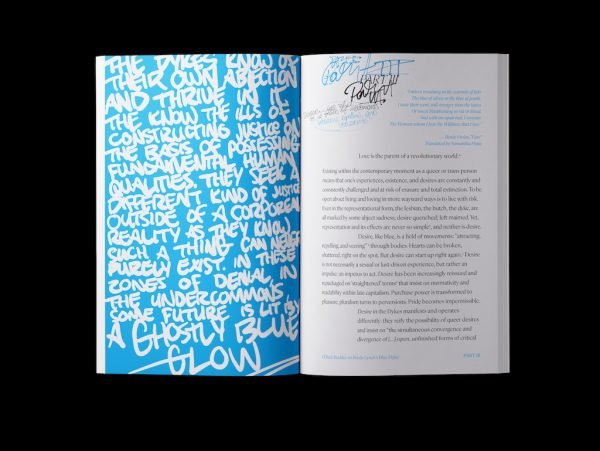 THE DYKES KNOW OF
THEIR OWN ABJECTION
AND THRIVE IN IT
THE KNOW THE ILLS OF
CONSTRUCTING JUSTICE ON
THE BASIS OF POSSESSING
FUNDAMENTAL HUMAN
QUALITIES THEY SEEK A
DIFFERENT KIND OF JUSTICE
OUTSIDE OF A CORPOREAL
REALITY AS THEY KNOW
SUCH A THING CAN NEVER
PURELY EXIST. IN THESE
ZONES OF DENIAL IN
THE UNDERCOMMONS
SOME FUTURE IS LIT BY
A GHOSTLY BLUE
GLOW
PART III
Translated by Samantha Pious
Love is the parent of a revolutionary world.
Existing within the contemporary moment as a queer or trans person
means that one's experiences, existence, and desires are constantly and
consistently challenged and at risk of erasure and total extinction. To be
open about living and loving in more wayward ways is to live with risk.
Even in the representational form, the lesbian, the butch, the dyke, are
all marked by some abject sadness; desire quenched; left maimed. Yet,
representation and its effects are never so simple, and neither is desire.
Desire, like blue, is a field of movements: "attracting,
repelling and seeing" through bodies. Hearts can be broken,
shuttered, right on the spot. But desire can start up right again. Desire
is not necessarily a sexual or lust-driven experience, but rather an
impulse: an impetus to act. Desire has been increasingly reissued and
repackaged on 'straightened' terms that insist on normativity and
readability within late capitalism. Purchase power is transformed to
pleasure; pluralism turns to perversions. Pride becomes impermissible.
Desire in the Dykes manifests and operates
differently: they reify the possibility of queer desires
and insist on "the simultaneous convergence and
divergence of [...] open, unfinished forms of critical
PART III